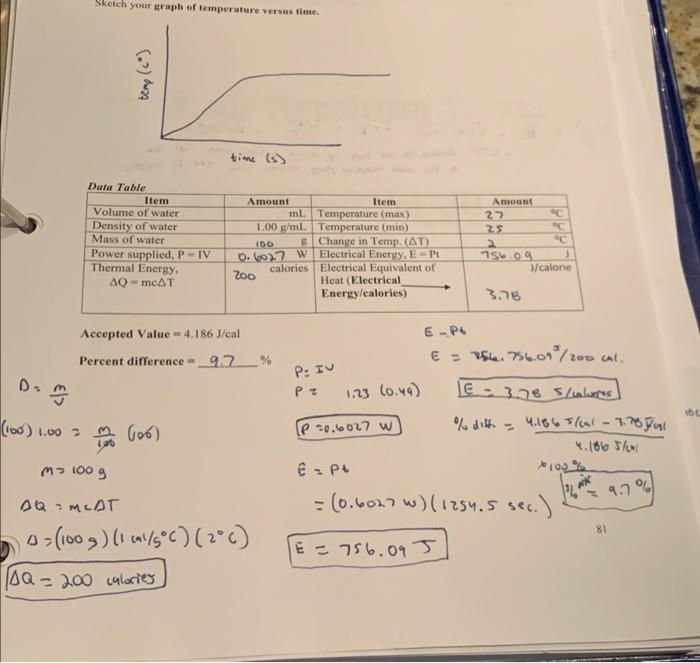 Sketch your graph of temperature versus time.
temp (c°)
time (s)
Data Table
Item Amount Item Amount
Volume of water mL Temperature (max) 27 °C
Density of water 1.00 g/mL Temperature (min) 25 °C
Mass of water 100 g Change in Temp. (ΔT) 2 °C
Power supplied, P = IV 0.6027 W Electrical Energy, E = Pt 756.09 J
Thermal Energy, ΔQ = mcΔT 200 calories Electrical Equivalent of Heat (Electrical Energy/calories) 3.78 J/calorie
Accepted Value = 4.186 J/cal
Percent difference = 9.7 %
D = m/V
(100) 1.00 = m/100 (100)
m = 100 g
ΔQ = mcΔT
Δ = (100 g)(1 cal/g°C)(2°C)
ΔQ = 200 calories
P = IV
P = 1.23 (0.49)
P = 0.6027 W
E = Pt
= (0.6027 W)(1254.5 sec.)
E = 756.09 J
E - Pt
E = 756.09 J/200 cal.
E = 3.78 J/calories
% diff = 4.186 J/cal - 3.78 J/cal
4.186 J/cal
* 100 %
% diff = 9.7 %
81